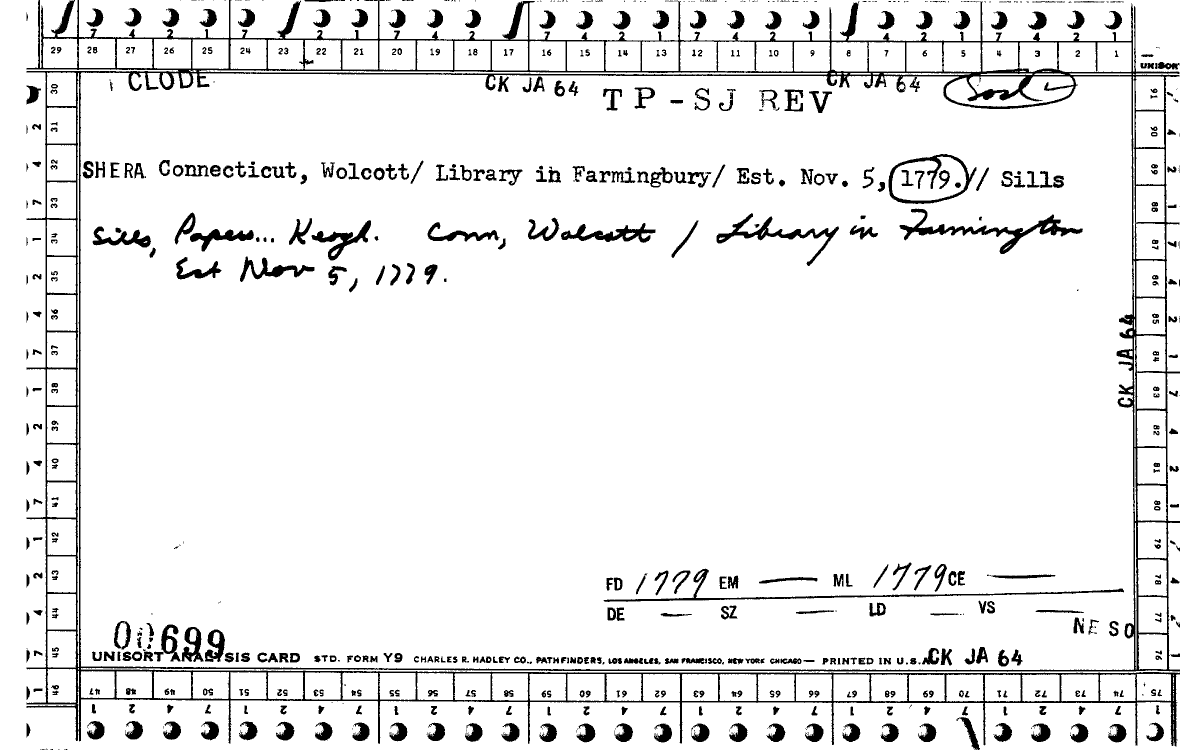 7 4 2 1 7 4 2 1 7 4 2 1 7 4 2 1 7 4 2 1 7 4 2 1 7 4 2 1
29 28 27 26 25 24 23 22 21 20 19 18 17 16 15 14 13 12 11 10 9 8 7 6 5 4 3 2 1
UNISORT
CLODE CK JA 64 TP-SJ REV CK JA 64
SHERA Connecticut, Wolcott/ Library in Farmingbury/ Est. Nov. 5, 1779.// Sills
Sills, Papers... Keogh. Conn, Wolcott / Library in Farmington
Est Nov 5, 1779.
CK JA 64
FD 1779 EM — ML 1779 CE —
DE — SZ — LD — VS —
NE SO
00699
UNISORT ANALYSIS CARD STD. FORM Y9 CHARLES R. HADLEY CO., PATHFINDERS, LOS ANGELES, SAN FRANCISCO, NEW YORK CHICAGO — PRINTED IN U.S.A. CK JA 64
46 47 48 49 50 51 52 53 54 55 56 57 58 59 60 61 62 63 64 65 66 67 68 69 70 71 72 73 74 75
1 2 4 7 1 2 4 7 1 2 4 7 1 2 4 7 1 2 4 7 1 2 4 7 1 2 4 7